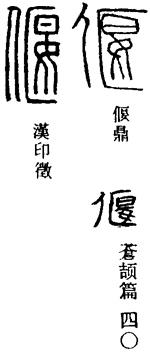 偃
偃鼎
偃
蒼颉篇 四〇
偃
漢印徵